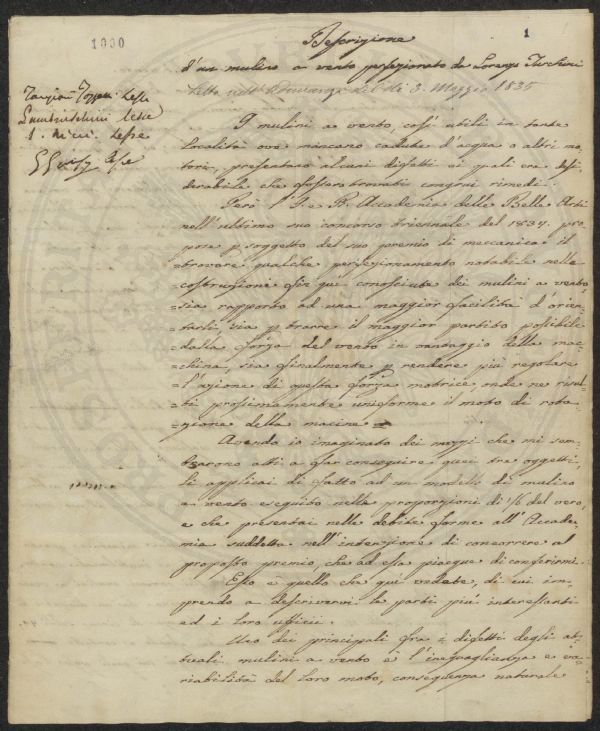 1000
1
Descrizione
d'un mulino a vento perfezionato da Lorenzo Turchini
Letta nell'Adunanza del dì 3. Maggio 1835
Targioni Tozzetti Lesse
Lambruschini Lesse
Lesse
I mulini a vento, così utili in tante
località ove mancano cadute d'acqua o altri mo
tori, presentano alcuni difetti ai quali era desi
derabile che fossero trovati congrui rimedi.
Però l'I. e R. Accademia delle Belle Arti
nell'ultimo suo concorso triennale del 1834. pro
pose p. soggetto del suo premio di meccanica il
=trovare qualche perfezionamento notabile nella
=costruzione fin qui conosciuta dei mulini a vento
=sia rapporto ad una maggior facilità d'orien
=tarli, sia p. trarre il maggior partito possibile
=dalla forza del vento in vantaggio della mac
=china, sia finalmente p. rendere più regolare
=l'azione di questa forza motrice, onde ne risul
=ti prossimamente uniforme il moto di rota
=zione della macine=
Avendo io imaginato dei mezzi che mi sem
brarono atti a far conseguire quei tre oggetti,
li applicai di fatto ad un modello di mulino
a vento eseguito nelle proporzioni di 1/6 del vero,
e che presentai nelle debite forme all'Accade
mia suddetta nell'intenzione di concorrere al
proposto premio, che ad essa piacque di conferirmi.
Esso è quello che qui vedete, di cui im
prendo a descrivervi le parti più interessanti
ed i loro ufficii.
Uno dei principali fra i difetti degli at
tuali mulini a vento è l'ineguaglianza e va
riabilità del loro moto, conseguenza naturale